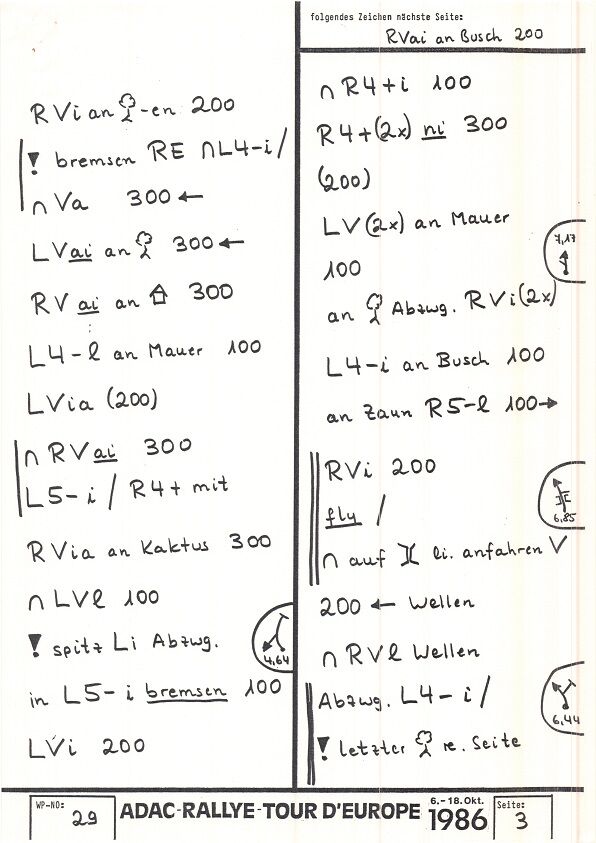 RVi an -en 200
! bremsen RE ∩L4-i/
∩Va 300 ←
LVai an 300 ←
RV ai an 300
L4-l an Mauer 100
LVia (200)
∩RVai 300
L5-i / R4+ mit
RVia an Kaktus 300
∩LVl 100
! spitz Li Abzwg.
4,64
in L5-i bremsen 100
LVi 200
folgendes Zeichen nächste Seite:
RVai an Busch 200
∩R4+i 100
R4+(2x) ni 300
(200)
LV(2x) an Mauer
7,17
100
an Abzwg. RVi(2x)
L4-i an Busch 100
an Zaun R5-l 100→
RVi 200
6,85
fly /
∩ auf li. anfahren V
200 ← Wellen
∩ RVl Wellen
Abzwg. L4-i/
6,44
! letzter re. Seite
WP-NO: 29
ADAC-RALLYE-TOUR D'EUROPE 6.-18.Okt. 1986
Seite: 3